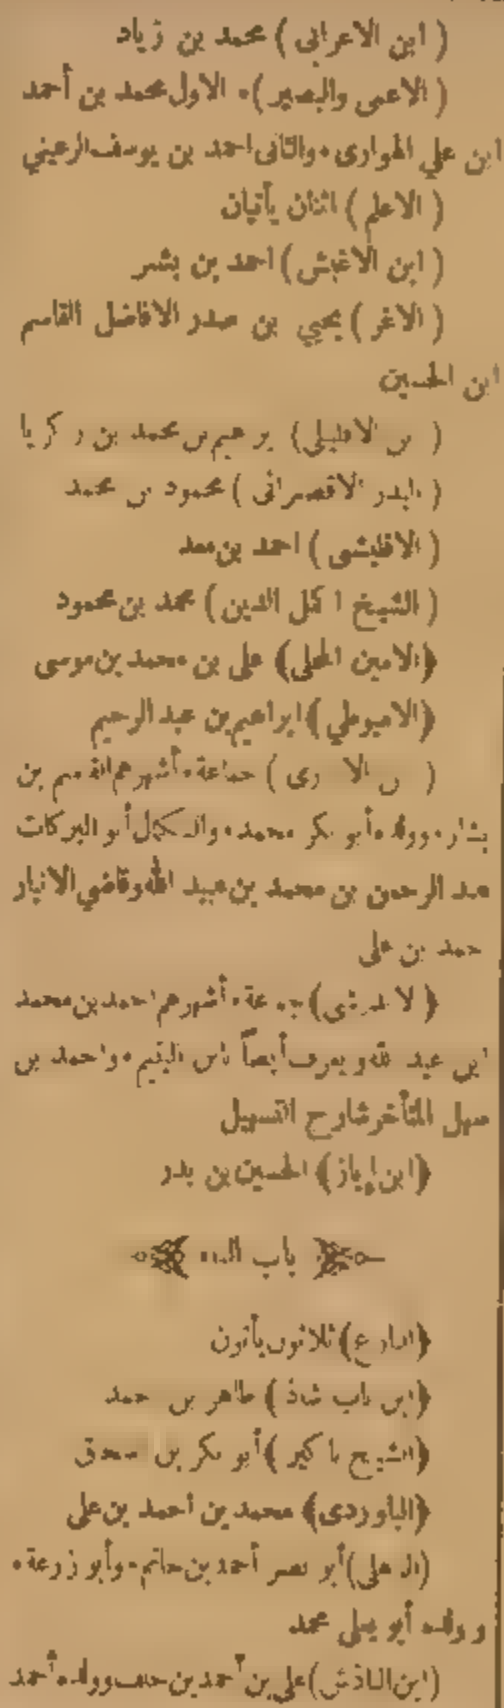 ( ابن الاعرابي ) محمد بن زياد
( الاعمى والبصير )• الاول محمد بن أحمد
ابن علي الهوارى • والثانى احمد بن يوسف الرعيني
( الاعلم ) اثنان يأتيان
( ابن الاغبش ) احمد بن بشر
( الاغر ) يحيي بن صدر الافاضل القاسم
ابن الحسين
( بن الافليلي ) بن محمد بن زكريا
( البدر الاقصرائى ) محمود بن محمد
( الاقليشى ) احمد بن معد
( الشيخ اكمل الدين ) محمد بن محمود
( الامين المحلى ) على بن محمد بن موسى
( الاميوطي ) ابراهيم بن عبد الرحيم
( جماعة • أشهرهم القاسم بن
بشار • وولده أبو بكر محمد • والكمال أبو البركات
عبد الرحمن بن محمد بن عبيد الله وقاضي الانبار
حمد بن على
( أشهرهم احمد بن محمد
ابن عبد الله ويعرف أيضاً واحمد بن
سهل المتأخر شارح التسهيل
( ابن إياز ) الحسين بن بدر
باب الباء
( البارع ) ثلاثون يأتون
( ابن باب شاذ ) طاهر بن حمد
( الشيخ باكير ) أبو بكر بن اسحق
( الباوردى ) محمد بن احمد بن على
( أبو نصر أحمد بن حاتم • وأبو زرعة •
وولده أبو يعلى محمد
( ابن الباذش ) على بن أحمد بن خلف وولده أحمد